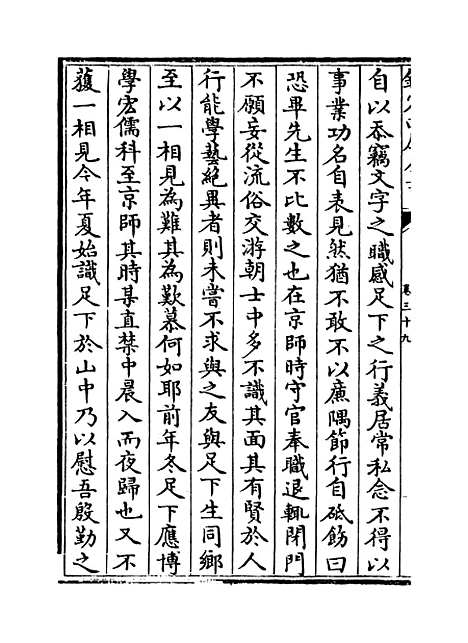 自以忝竊文字之職感足下之行義居常私念不得以
事業功名自表見然猶不敢不以廉隅節行自砥飭曰
恐畢先生不比數之也在京師時守官奉職退輒閉門
不願妄從流俗交游朝士中多不識其面其有賢於人
行能學藝絶異者則未嘗不求與之友與足下生同鄉
至以一相見為難其為歎慕何如耶前年冬足下應博
學宏儒科至京師其時某直禁中晨入而夜歸也又不
蕧一相見今年夏始識足下於山中乃以慰吾殷勤之
卷三十九